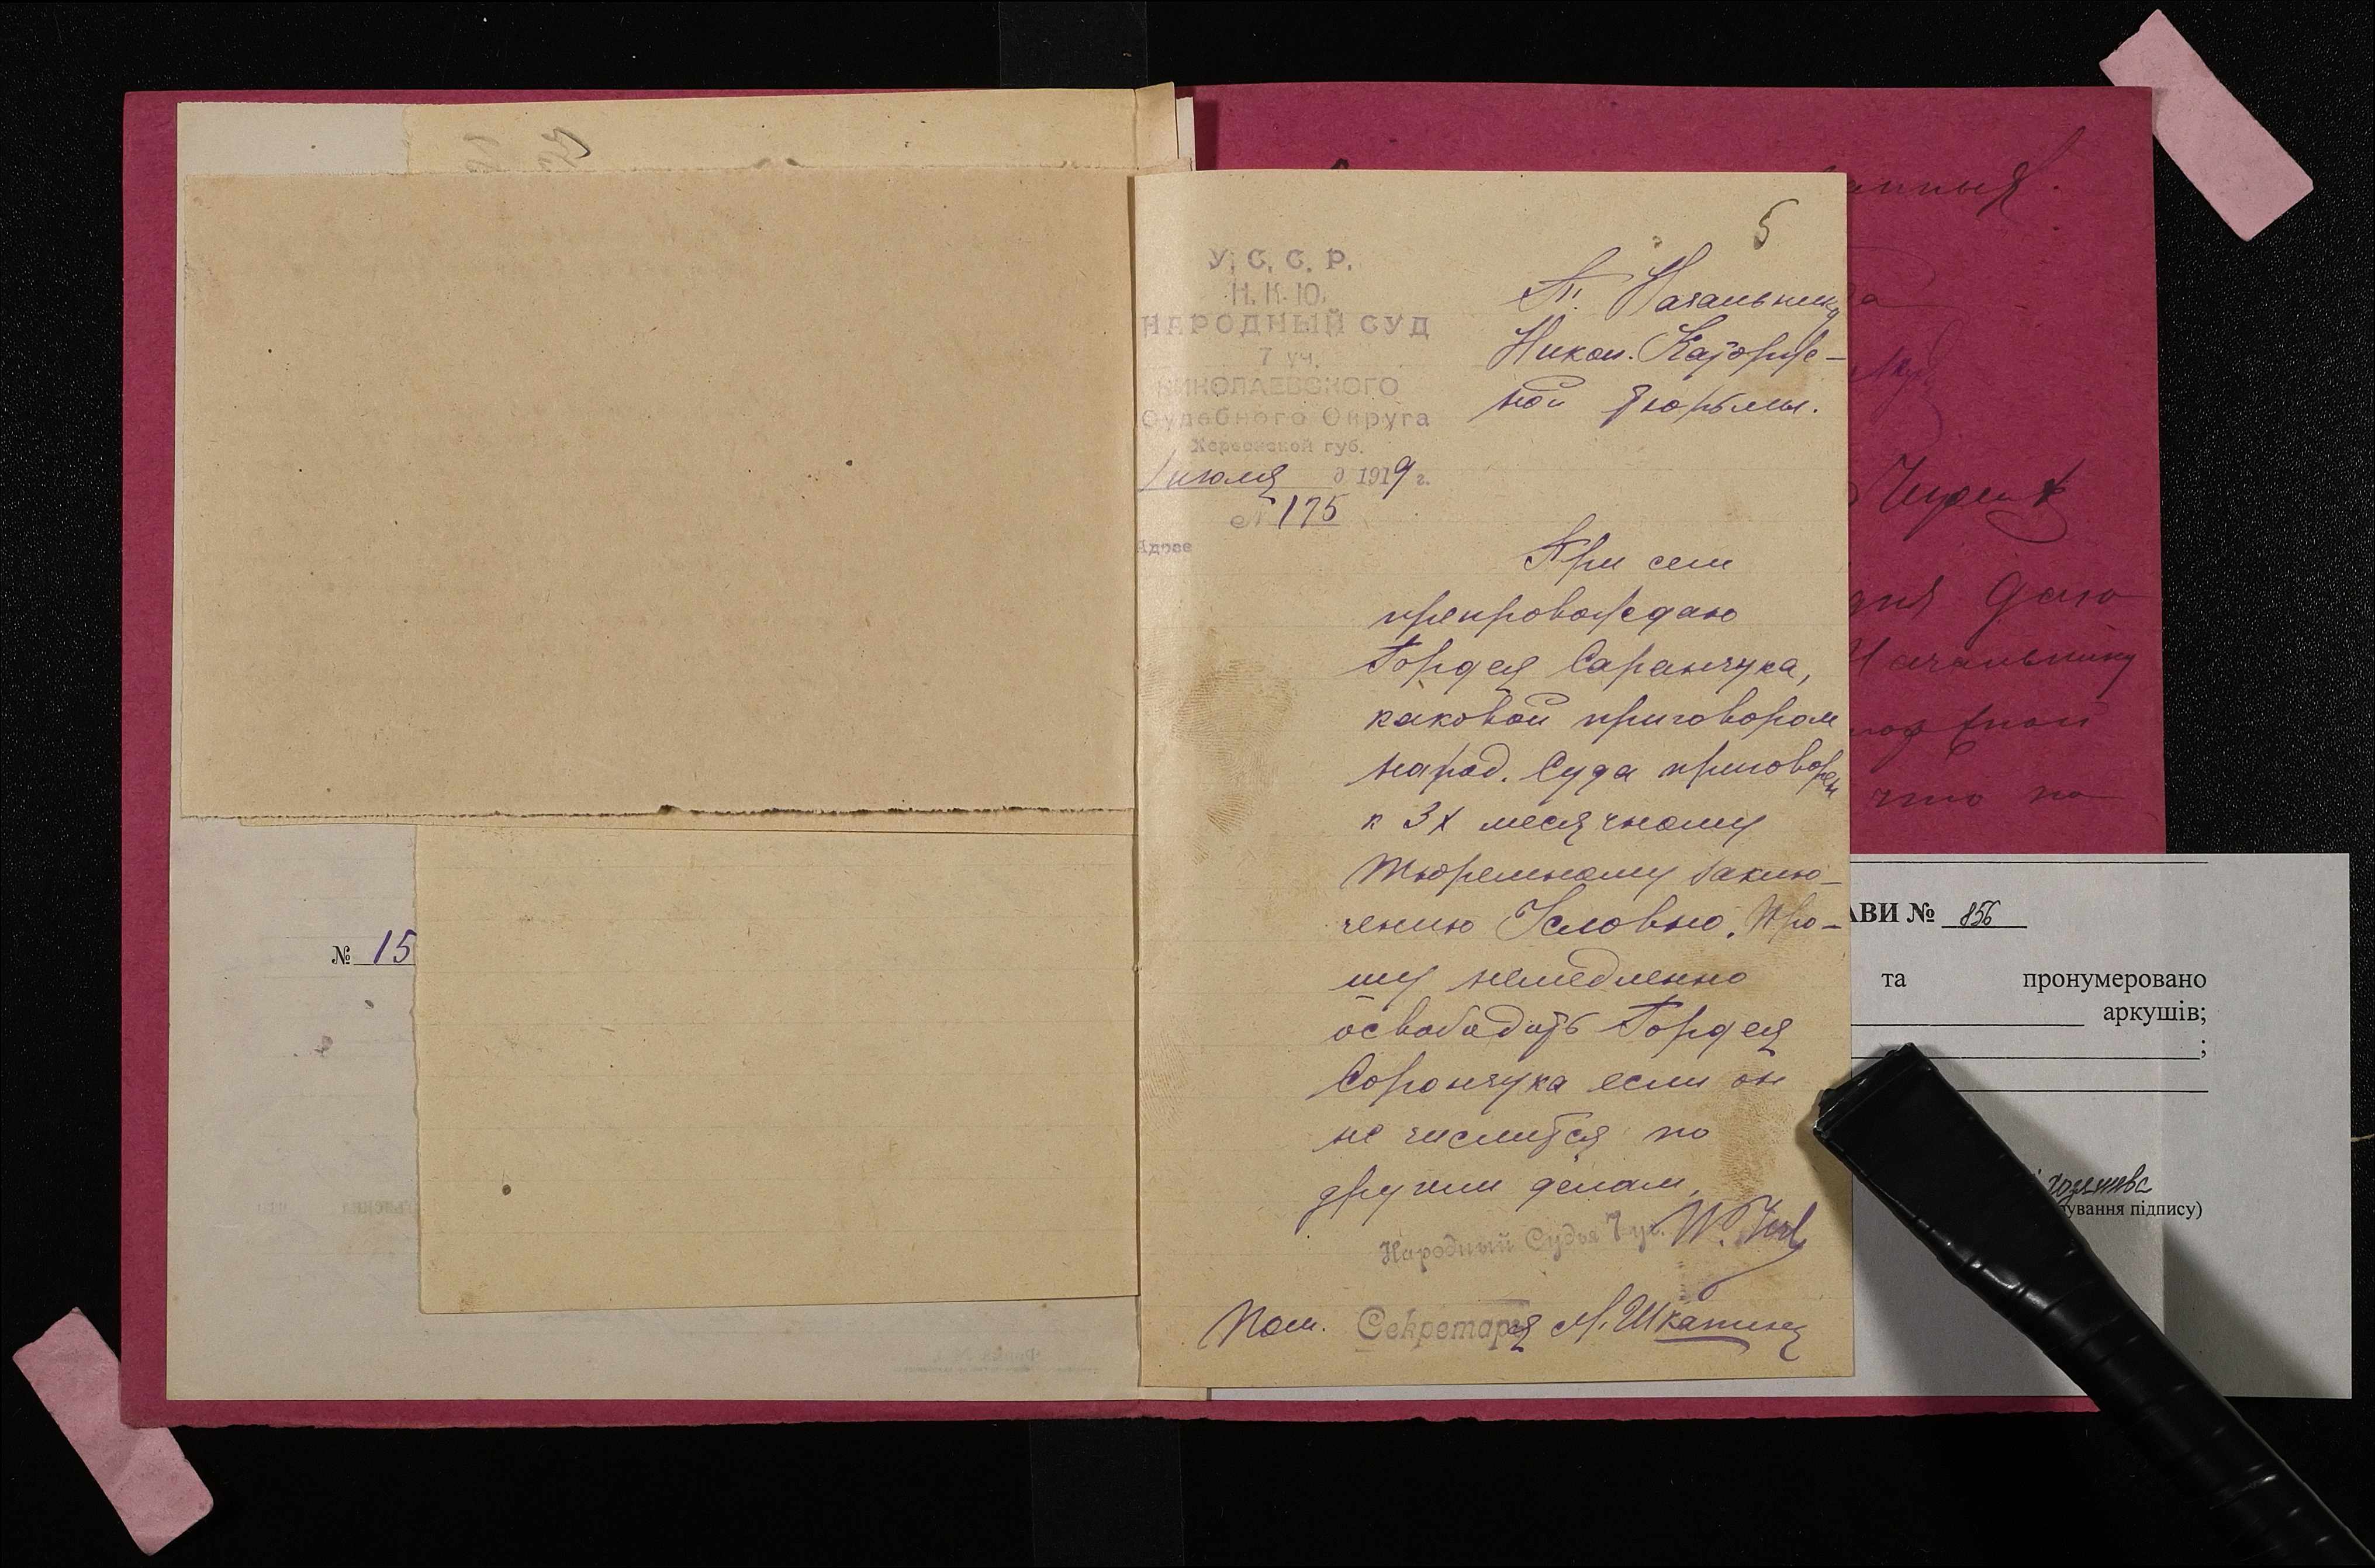 5
У. С. С. Р.
Н. К. Ю.
НАРОДНЫЙ СУД
7 уч.
НИКОЛАЕВСКОГО
Судебного Округа
Херсонской губ.
1 июля д 1919 г.
№ 175
Адрес
Г. Начальнику
Никол. Каторж-
ной Тюрьмы.
При сем
препровождаю
Гордея Саранчука,
каковой приговором
народ. Суда приговорен
к 3х месячному
тюремному заклю-
чению Условно. Про-
шу немедленно
освободить Гордея
Сорончука если он
не числится по
другим делам.
Народный Судья 7 уч.
Пом. Секретаря М. Шкапин
№ 15
Начальнику
что по
АВИ № 856
та пронумеровано
аркушів;
;
ування підпису)